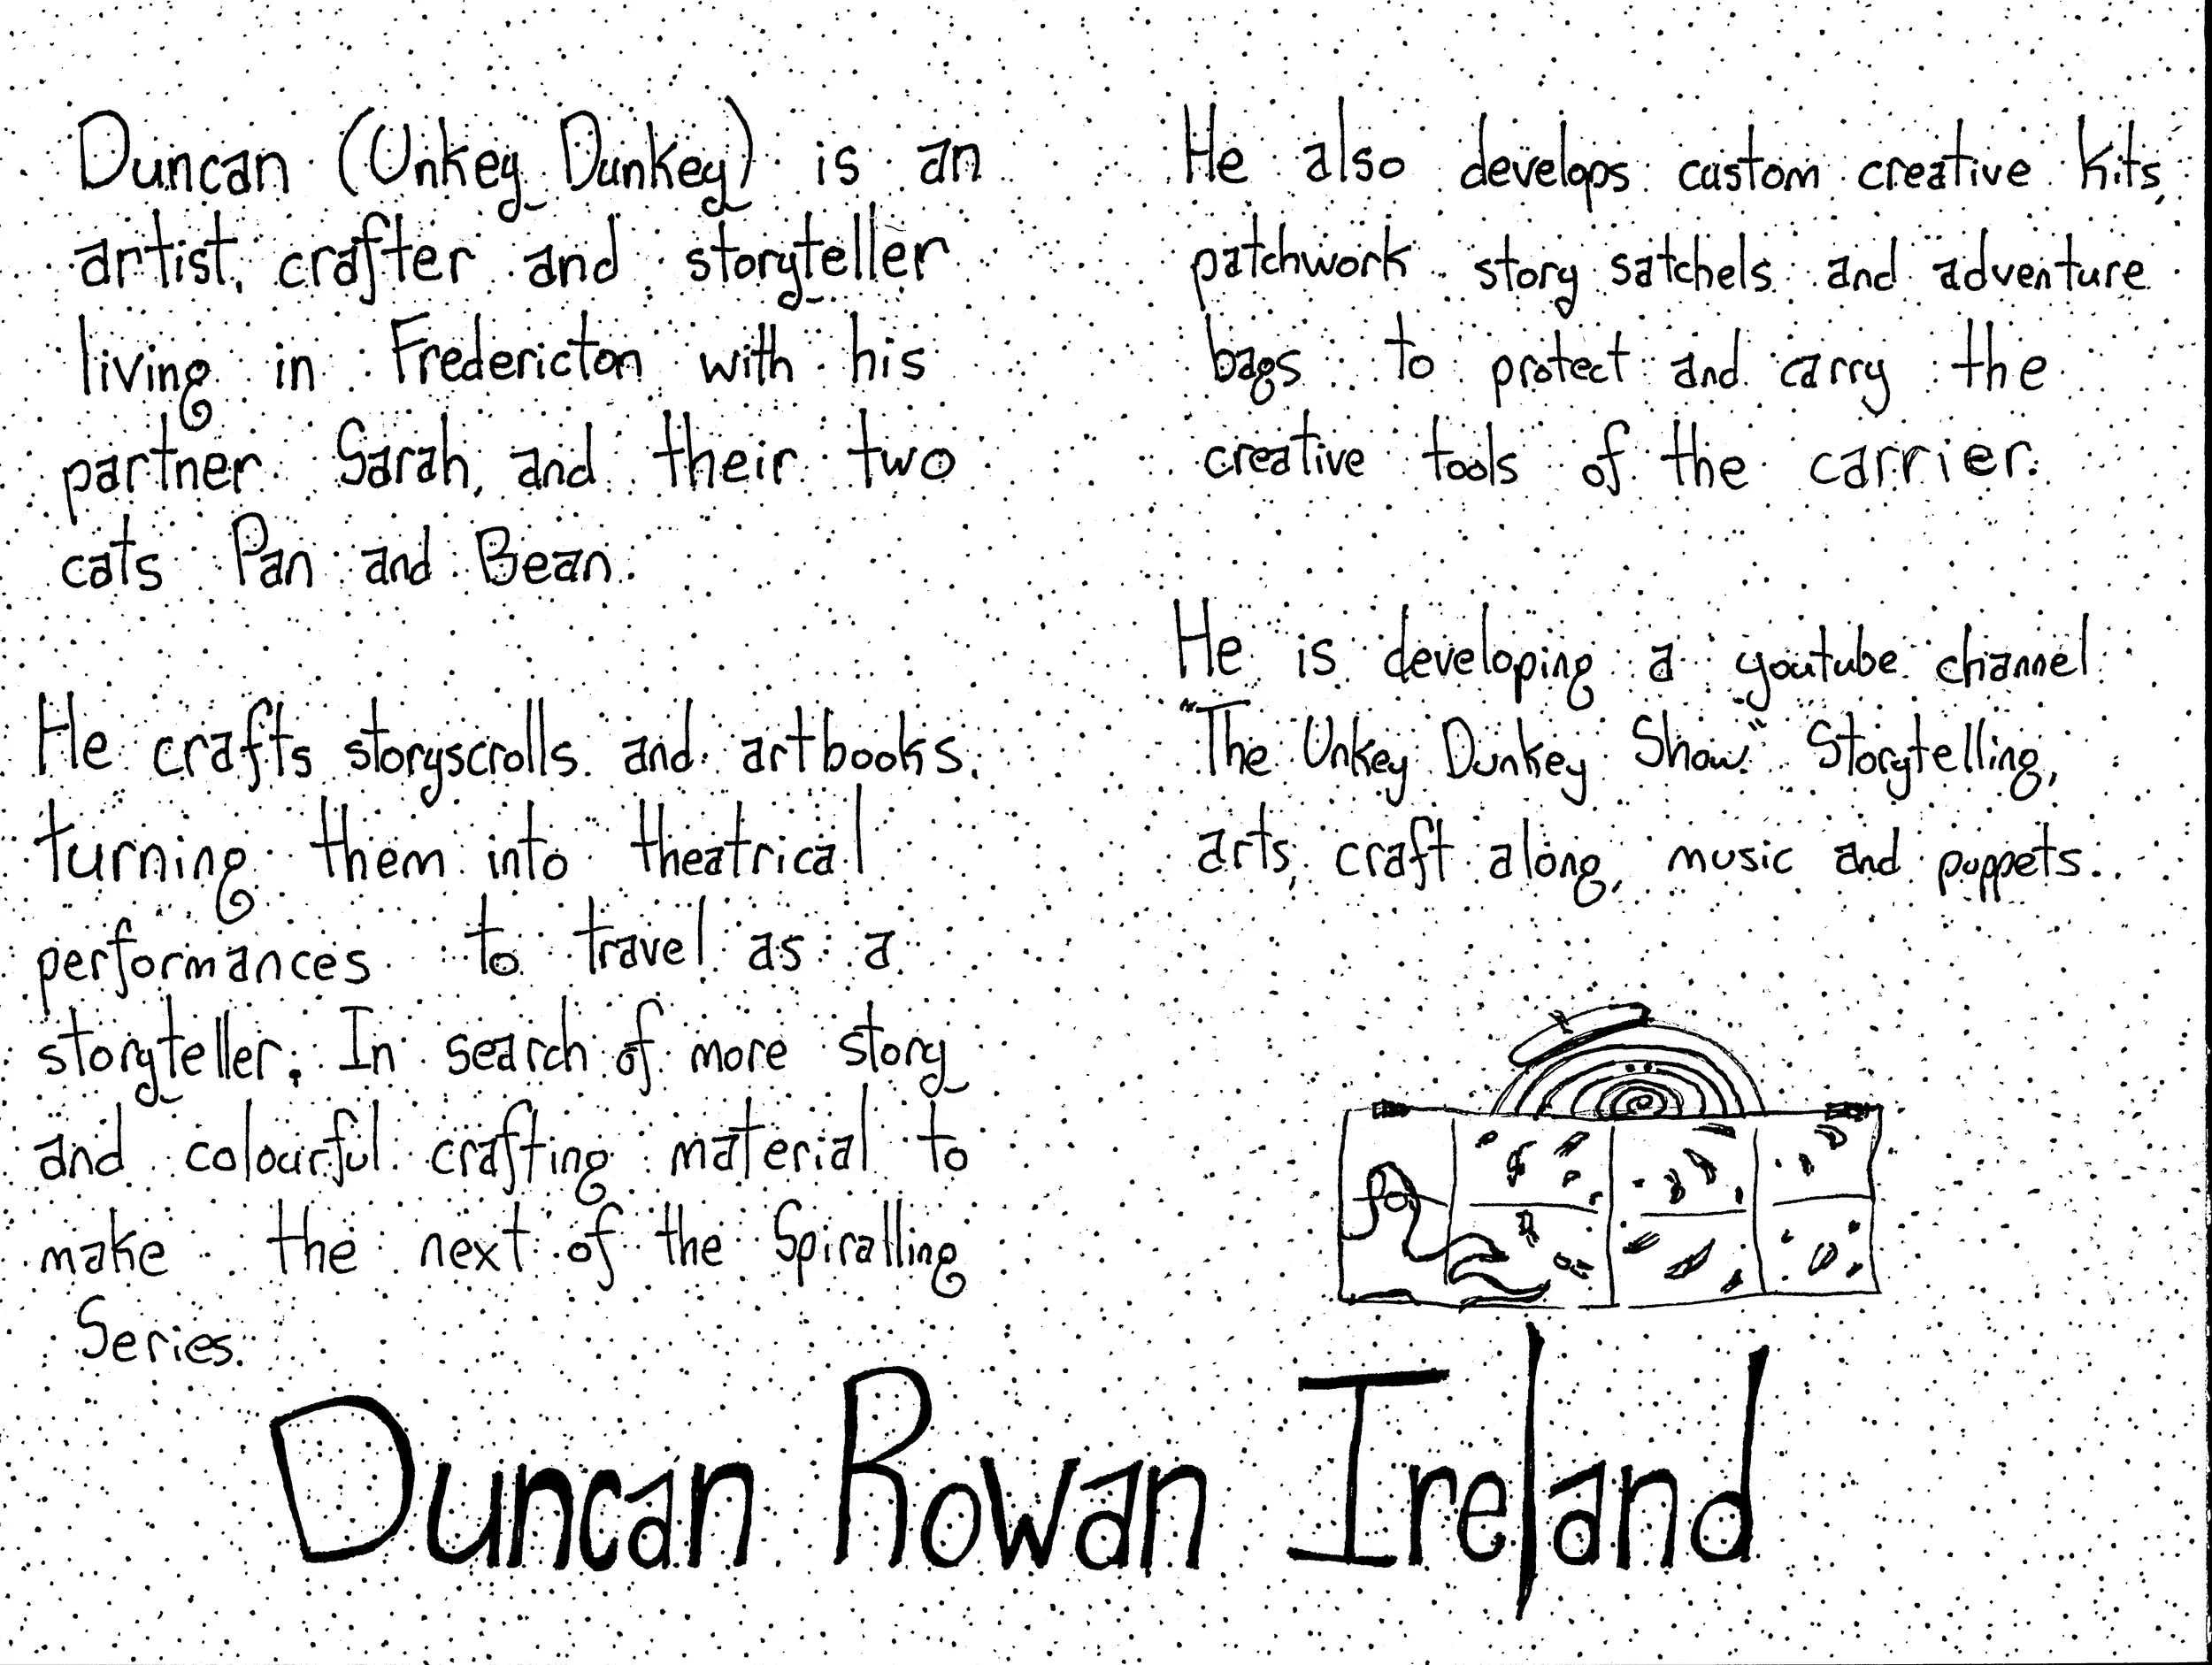 Duncan (Unkey Dunkey) is an
artist, crafter and storyteller
living in Fredericton with his
partner Sarah, and their two
cats Pan and Bean.
He crafts storyscrolls and artbooks,
turning them into theatrical
performances to travel as a
storyteller. In search of more story
and colourful crafting material to
make the next of the Spiralling
Series.
He also develops custom creative kits,
patchwork story satchels and adventure
bags to protect and carry the
creative tools of the carrier.
He is developing a youtube channel
"The Unkey Dunkey Show." Storytelling,
arts, craft along, music and puppets.
Duncan Rowan Ireland